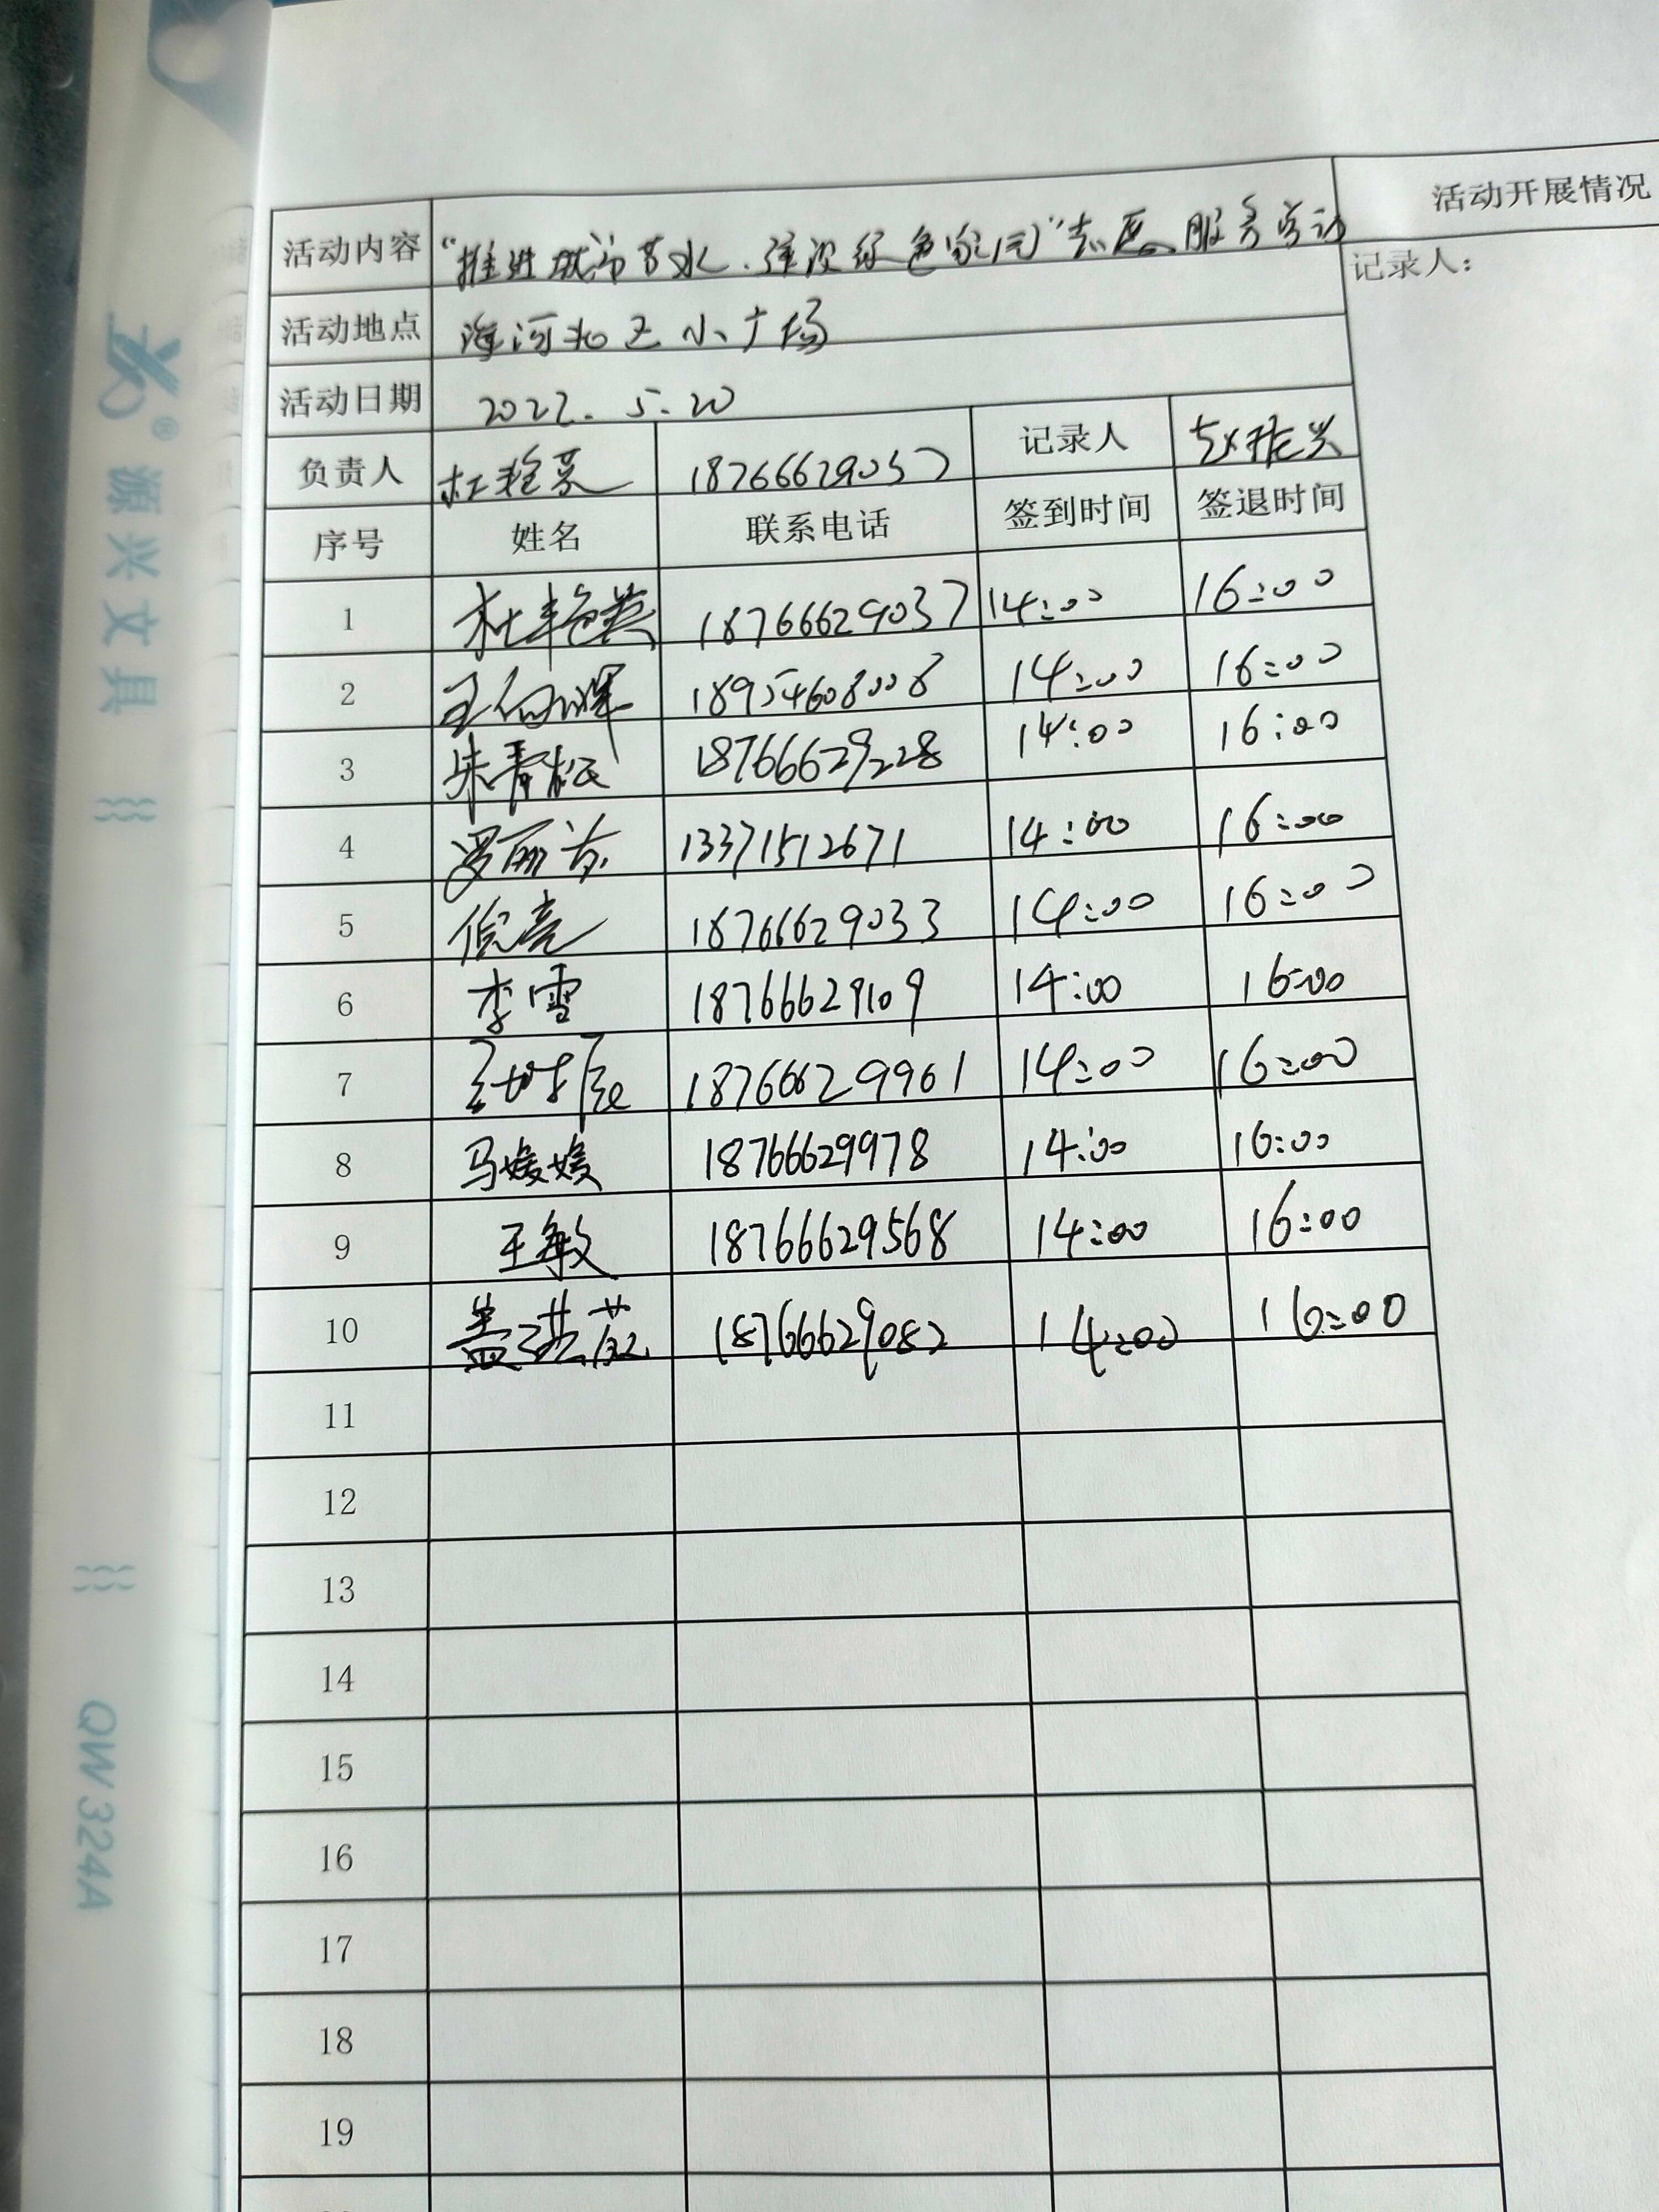 活动内容 "推进城市节水，建设绿色家园"志愿服务活动 活动开展情况
记录人：
活动地点 海河北区小广场
活动日期 2022.5.20
负责人 杜艳英 18766629037 记录人 赵振兴
序号 姓名 联系电话 签到时间 签退时间
1 杜艳英 18766629037 14:00 16:00
2 18954608008 14:00 16:00
3 朱青松 18766629228 14:00 16:00
4 13371512671 14:00 16:00
5 倪亮 18766629033 14:00 16:00
6 李雪 18766629109 14:00 16:00
7 18766629961 14:00 16:00
8 马媛媛 18766629978 14:00 16:00
9 王敏 18766629568 14:00 16:00
10 18766629082 14:00 16:00
11
12
13
14
15
16
17
18
19
源兴文具
QW324A